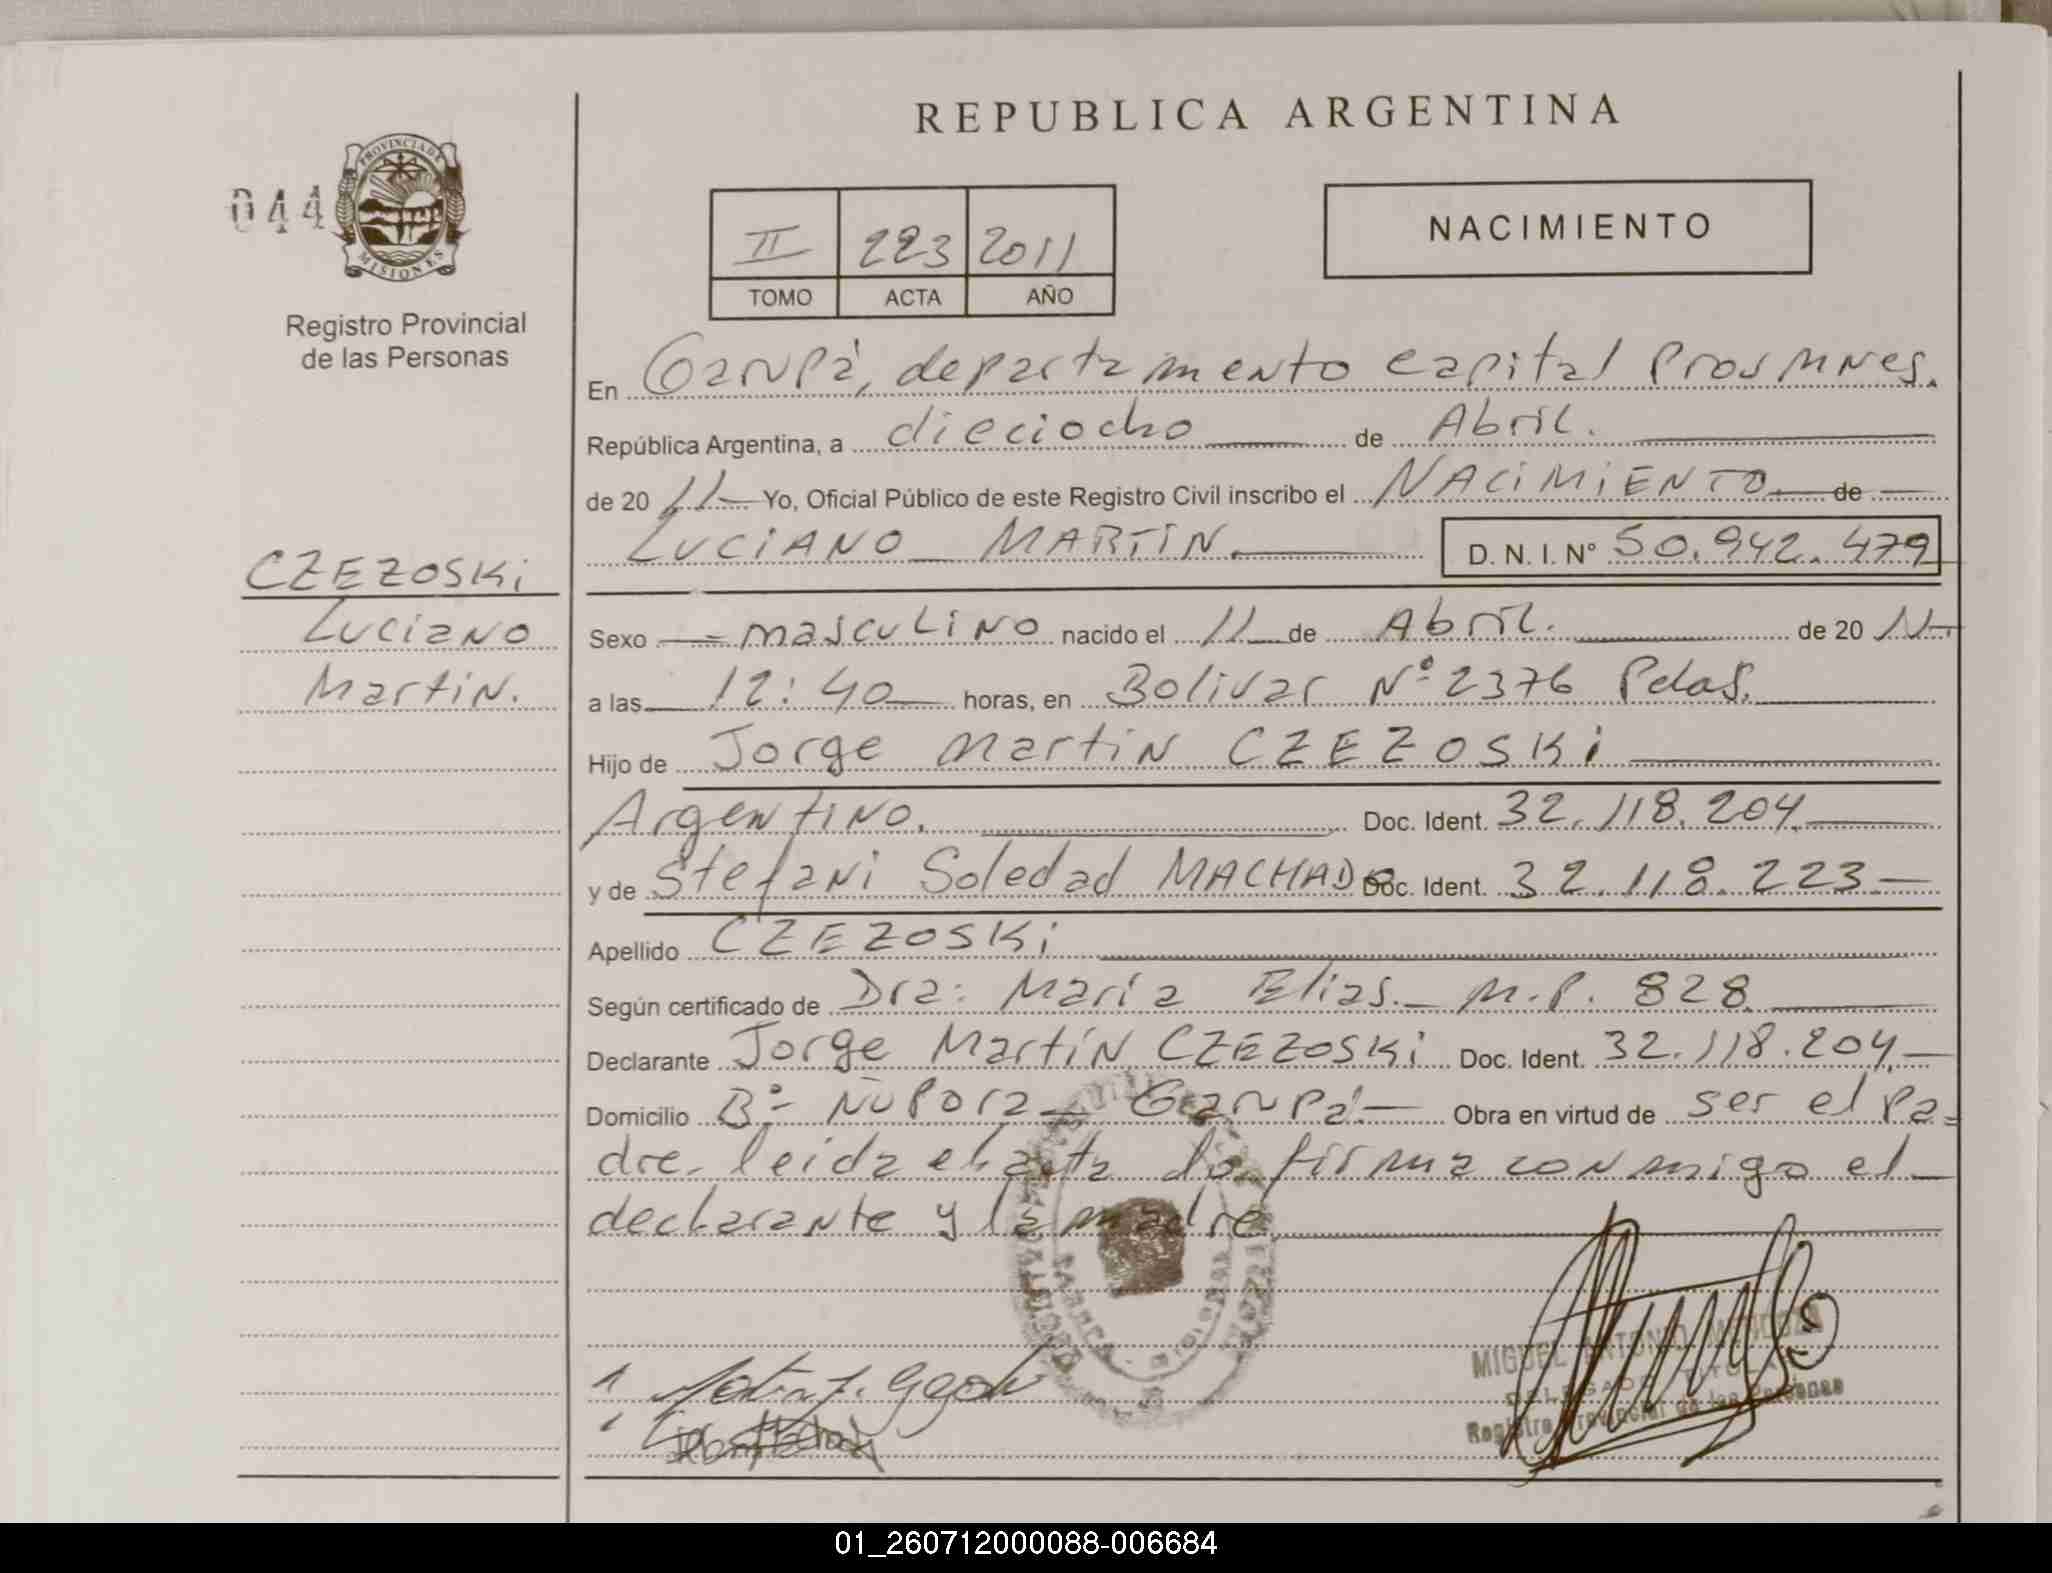 REPUBLICA ARGENTINA
044
PROVINCIA DE
MISIONES
Registro Provincial
de las Personas
II 223 2011
TOMO ACTA AÑO
NACIMIENTO
En Garupá, departamento capital Prov Mnes.
República Argentina, a dieciocho de Abril.
de 20 11 Yo, Oficial Público de este Registro Civil inscribo el NACIMIENTO de
LUCIANO MARTIN. D. N. I. N° 50.942.479
CZEZOSKi
Luciano
Martin.
Sexo masculino nacido el 11 de Abril. de 20 11
a las 12:40 horas, en Bolivar N° 2376 Pdas.
Hijo de Jorge Martin CZEZOSKi
Argentino. Doc. Ident. 32.118.204
y de Stefani Soledad MACHADO Doc. Ident. 32.118.223
Apellido CZEZOSKi
Según certificado de Dra: Maria Elias. M.P. 828
Declarante Jorge Martín CZEZOSKi Doc. Ident. 32.118.204
Domicilio B° Ñu Pora Garupá Obra en virtud de ser el pa=
dre leida el acta la firma conmigo el
declarante y la madre
MIGUEL ANTONIO MENDOZA
DELEGADO TITULAR
Registro Provincial de las Personas
01_260712000088-006684